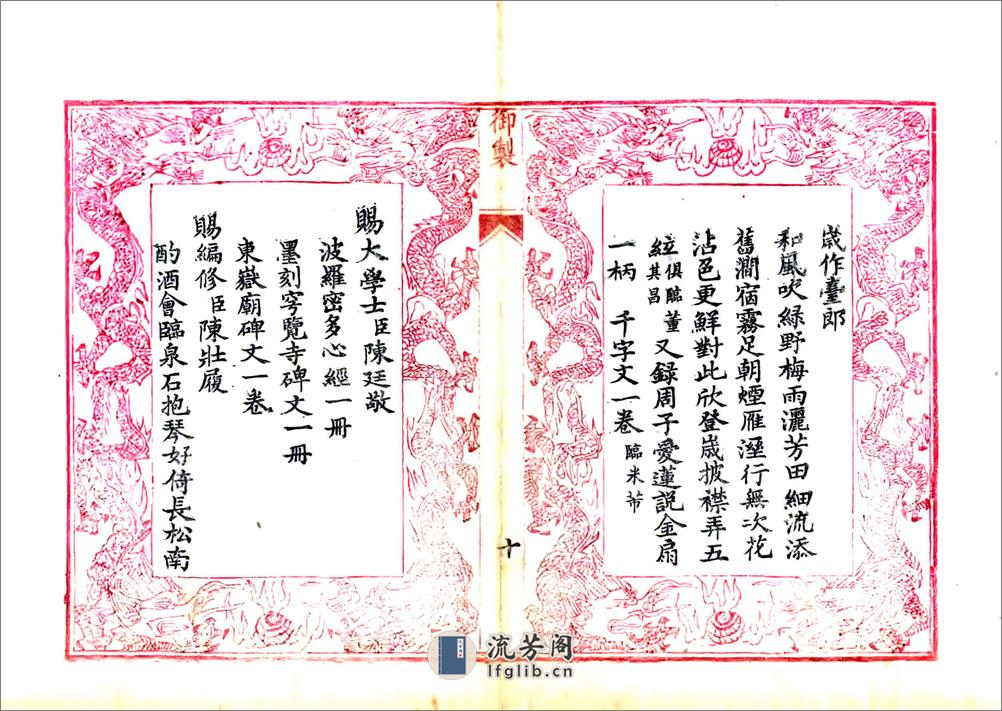 歲作臺郎
和風吹綠野梅雨灑芳田細流添
舊澗宿霧足朝煙雁溼行無次花
沾色更鮮對此欣登歲披襟弄五
絃俱臨董其昌又録周子愛蓮説金扇
一柄 千字文一卷臨米芾
御製
十
賜大學士臣陳廷敬
波羅密多心經一冊
墨刻穹覽寺碑文一冊
東嶽廟碑文一卷
賜編修臣陳壯履
酌酒會臨泉石抱琴好倚長松南
流芳阁
lfglib.cn